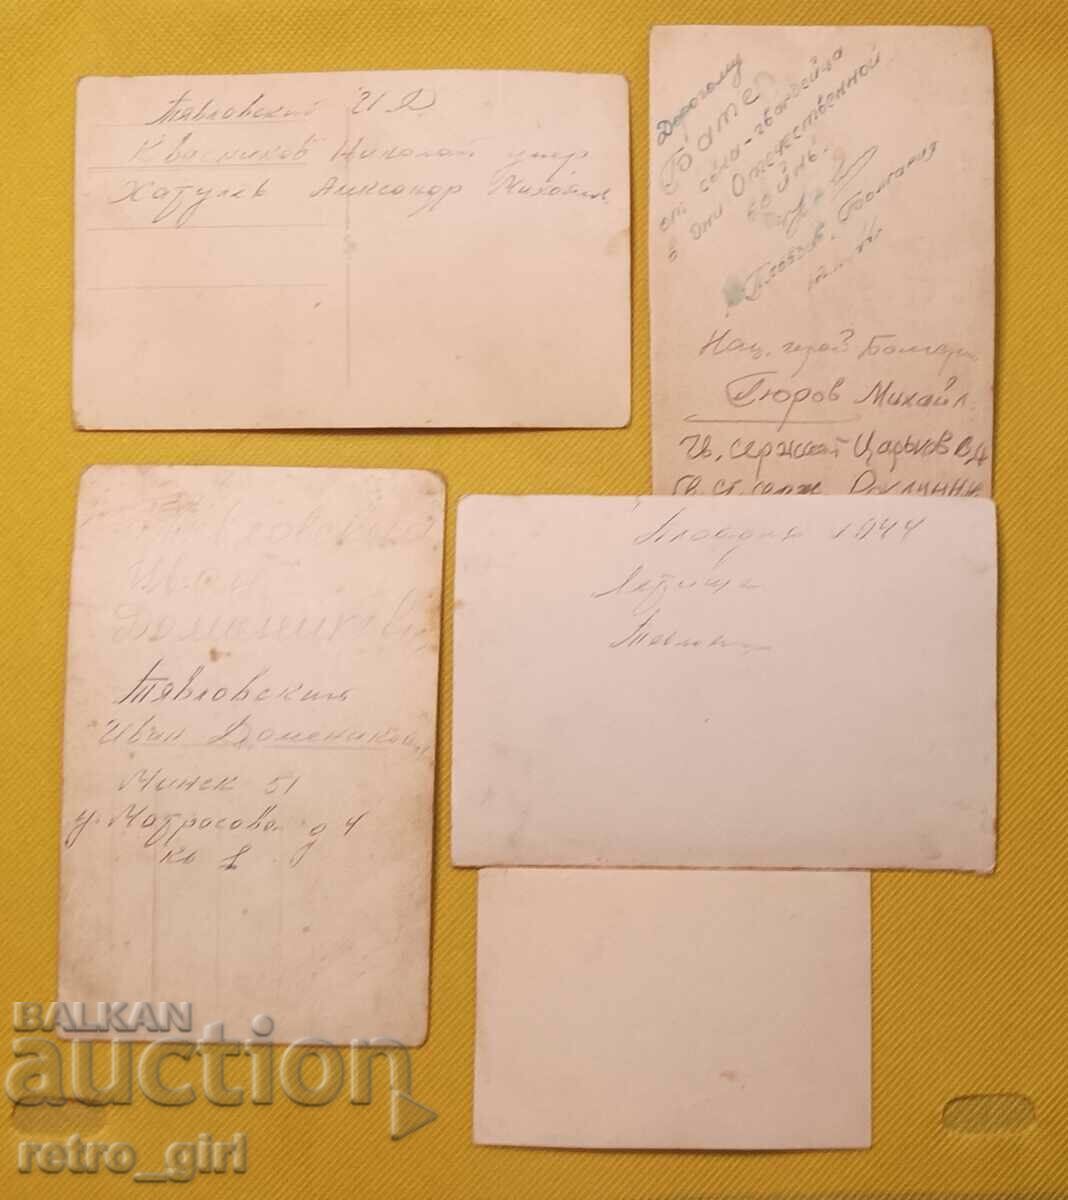 Тявловский И Д
Квасников Николай умер
Хатулев Александр Михайл.
Дорогому
Бате
от сына-гвардейца
в дни Отечественной
войны.
Пловдив. Болгария
Нац. герой Болгари
Гюров Михайл.
Гв. сержант Царьков В Д
Гв. ст. серж
Тявловский
Иван
Доменикови
Тявловский
Иван Доменикович
Минск 51
у. Матросова д 4
кв 1
Пловдив 1944
BALKAN
auction
retro_girl